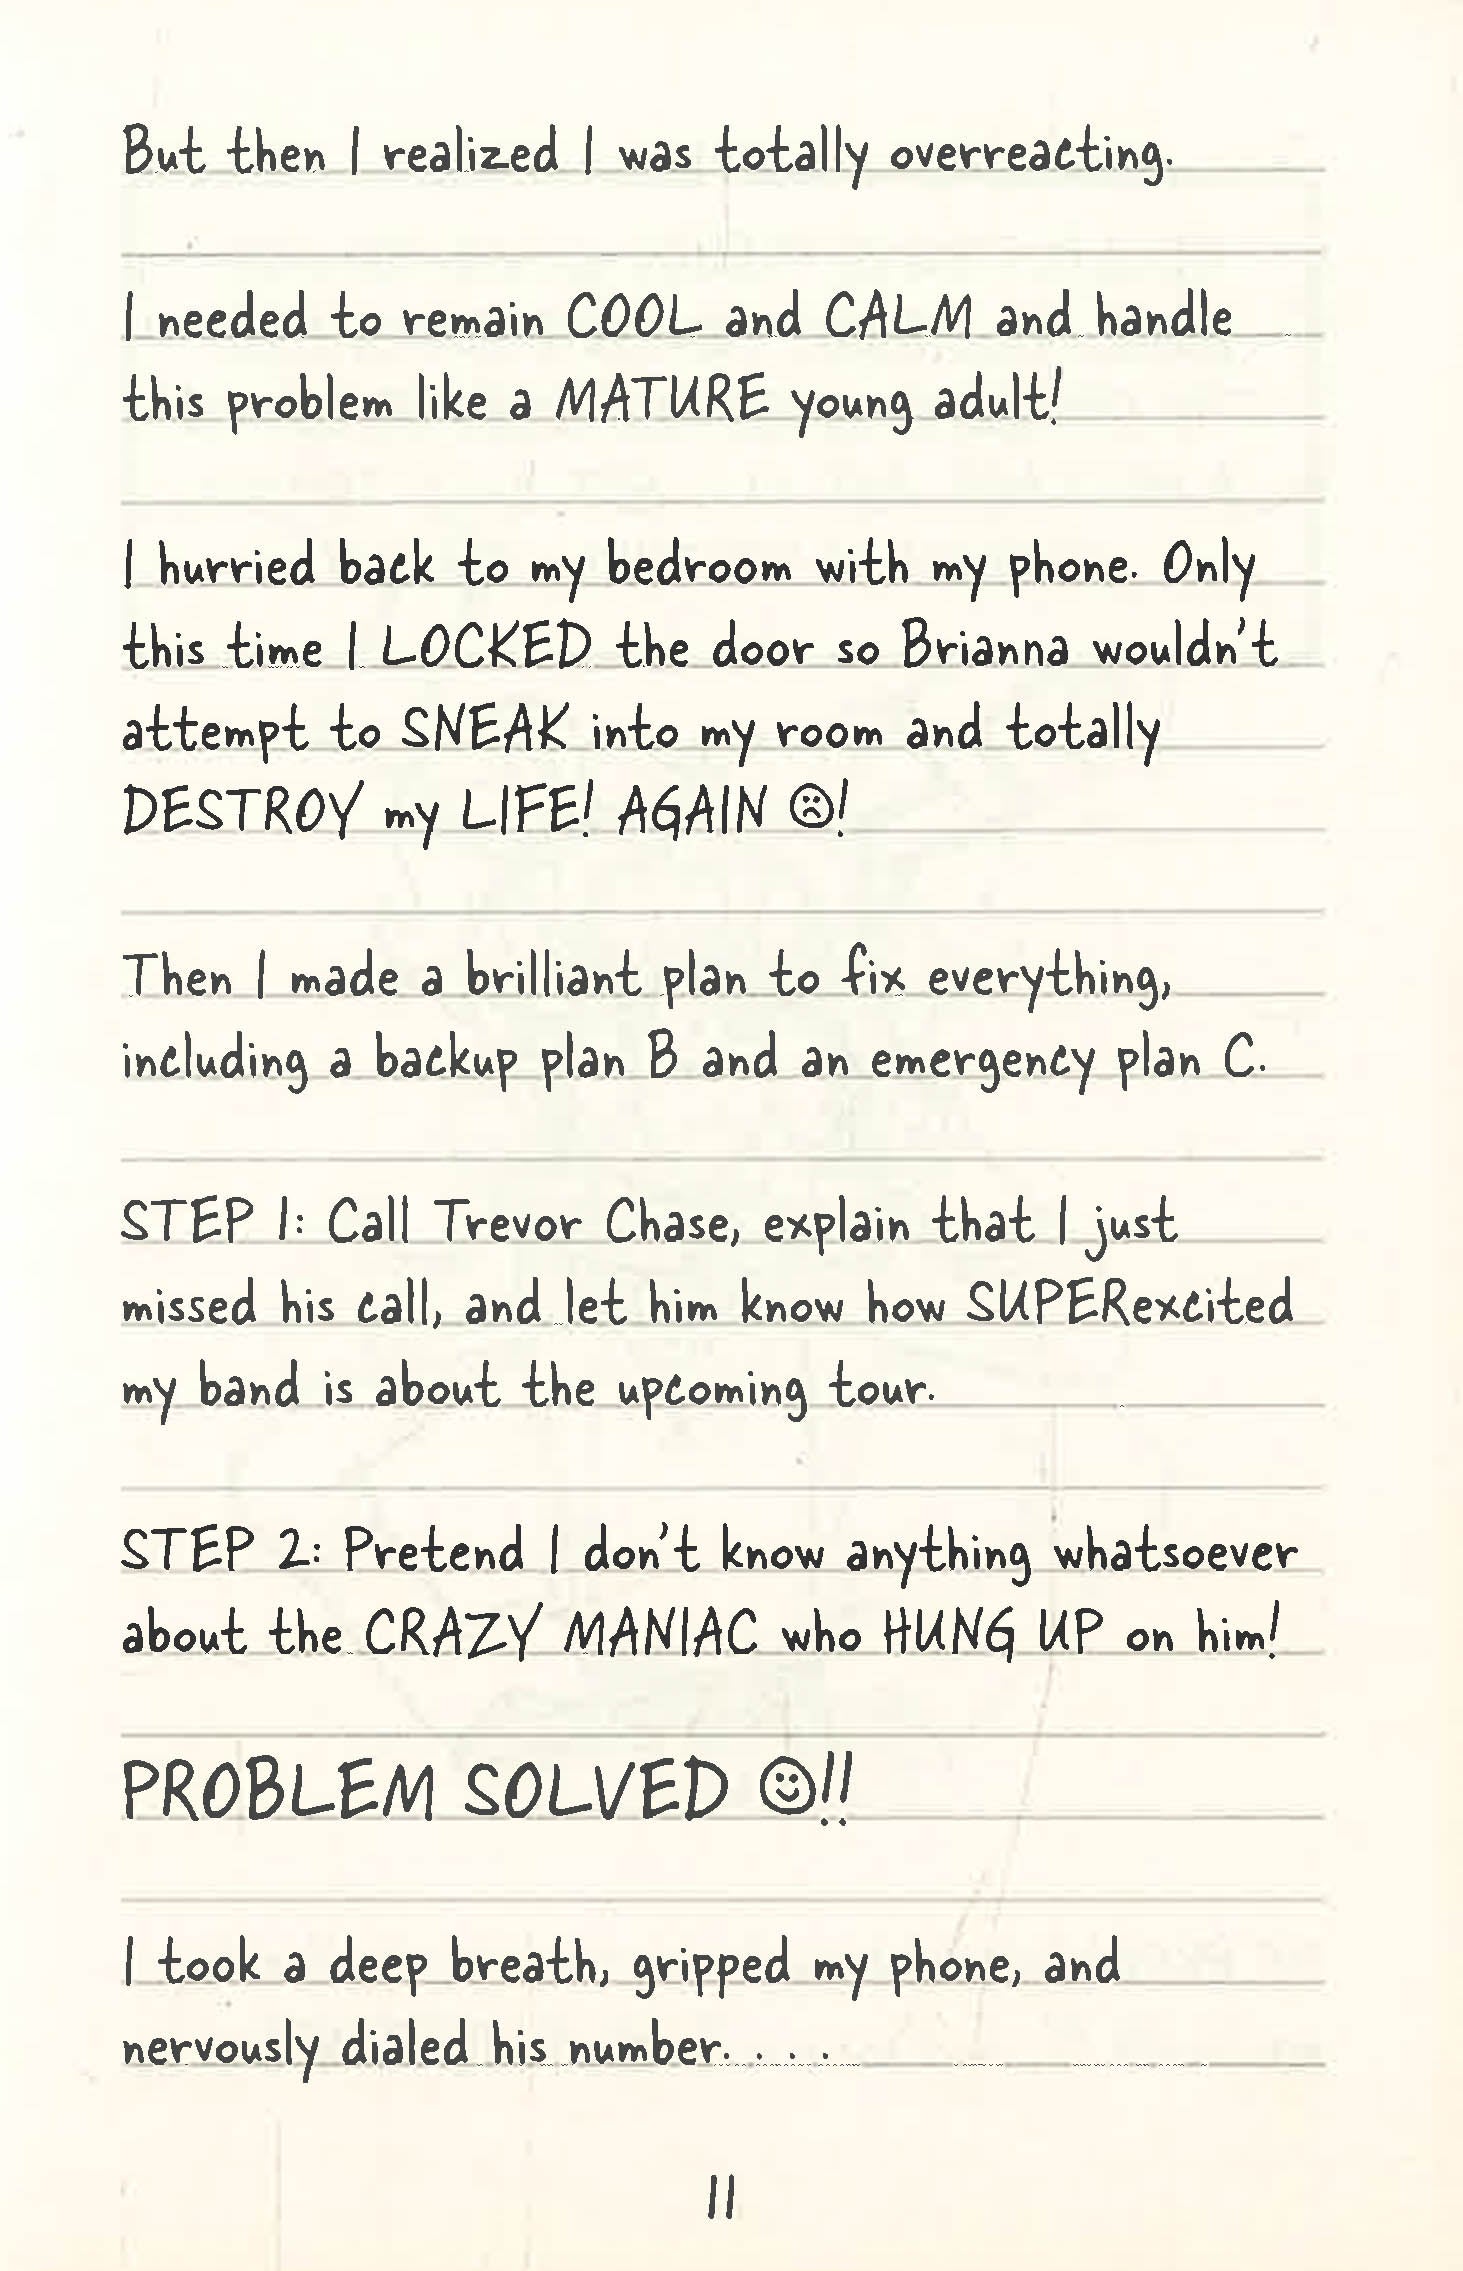 But then I realized I was totally overreacting.
I needed to remain COOL and CALM and handle
this problem like a MATURE young adult!
I hurried back to my bedroom with my phone. Only
this time I LOCKED the door so Brianna wouldn't
attempt to SNEAK into my room and totally
DESTROY my LIFE! AGAIN ☹!
Then I made a brilliant plan to fix everything,
including a backup plan B and an emergency plan C.
STEP 1: Call Trevor Chase, explain that I just
missed his call, and let him know how SUPERexcited
my band is about the upcoming tour.
STEP 2: Pretend I don't know anything whatsoever
about the CRAZY MANIAC who HUNG UP on him!
PROBLEM SOLVED ☺!!
I took a deep breath, gripped my phone, and
nervously dialed his number. . . .
11